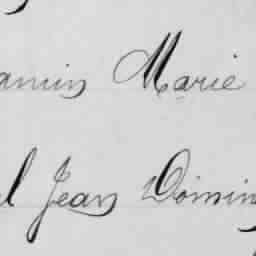 amin Marie
l Jean Domin